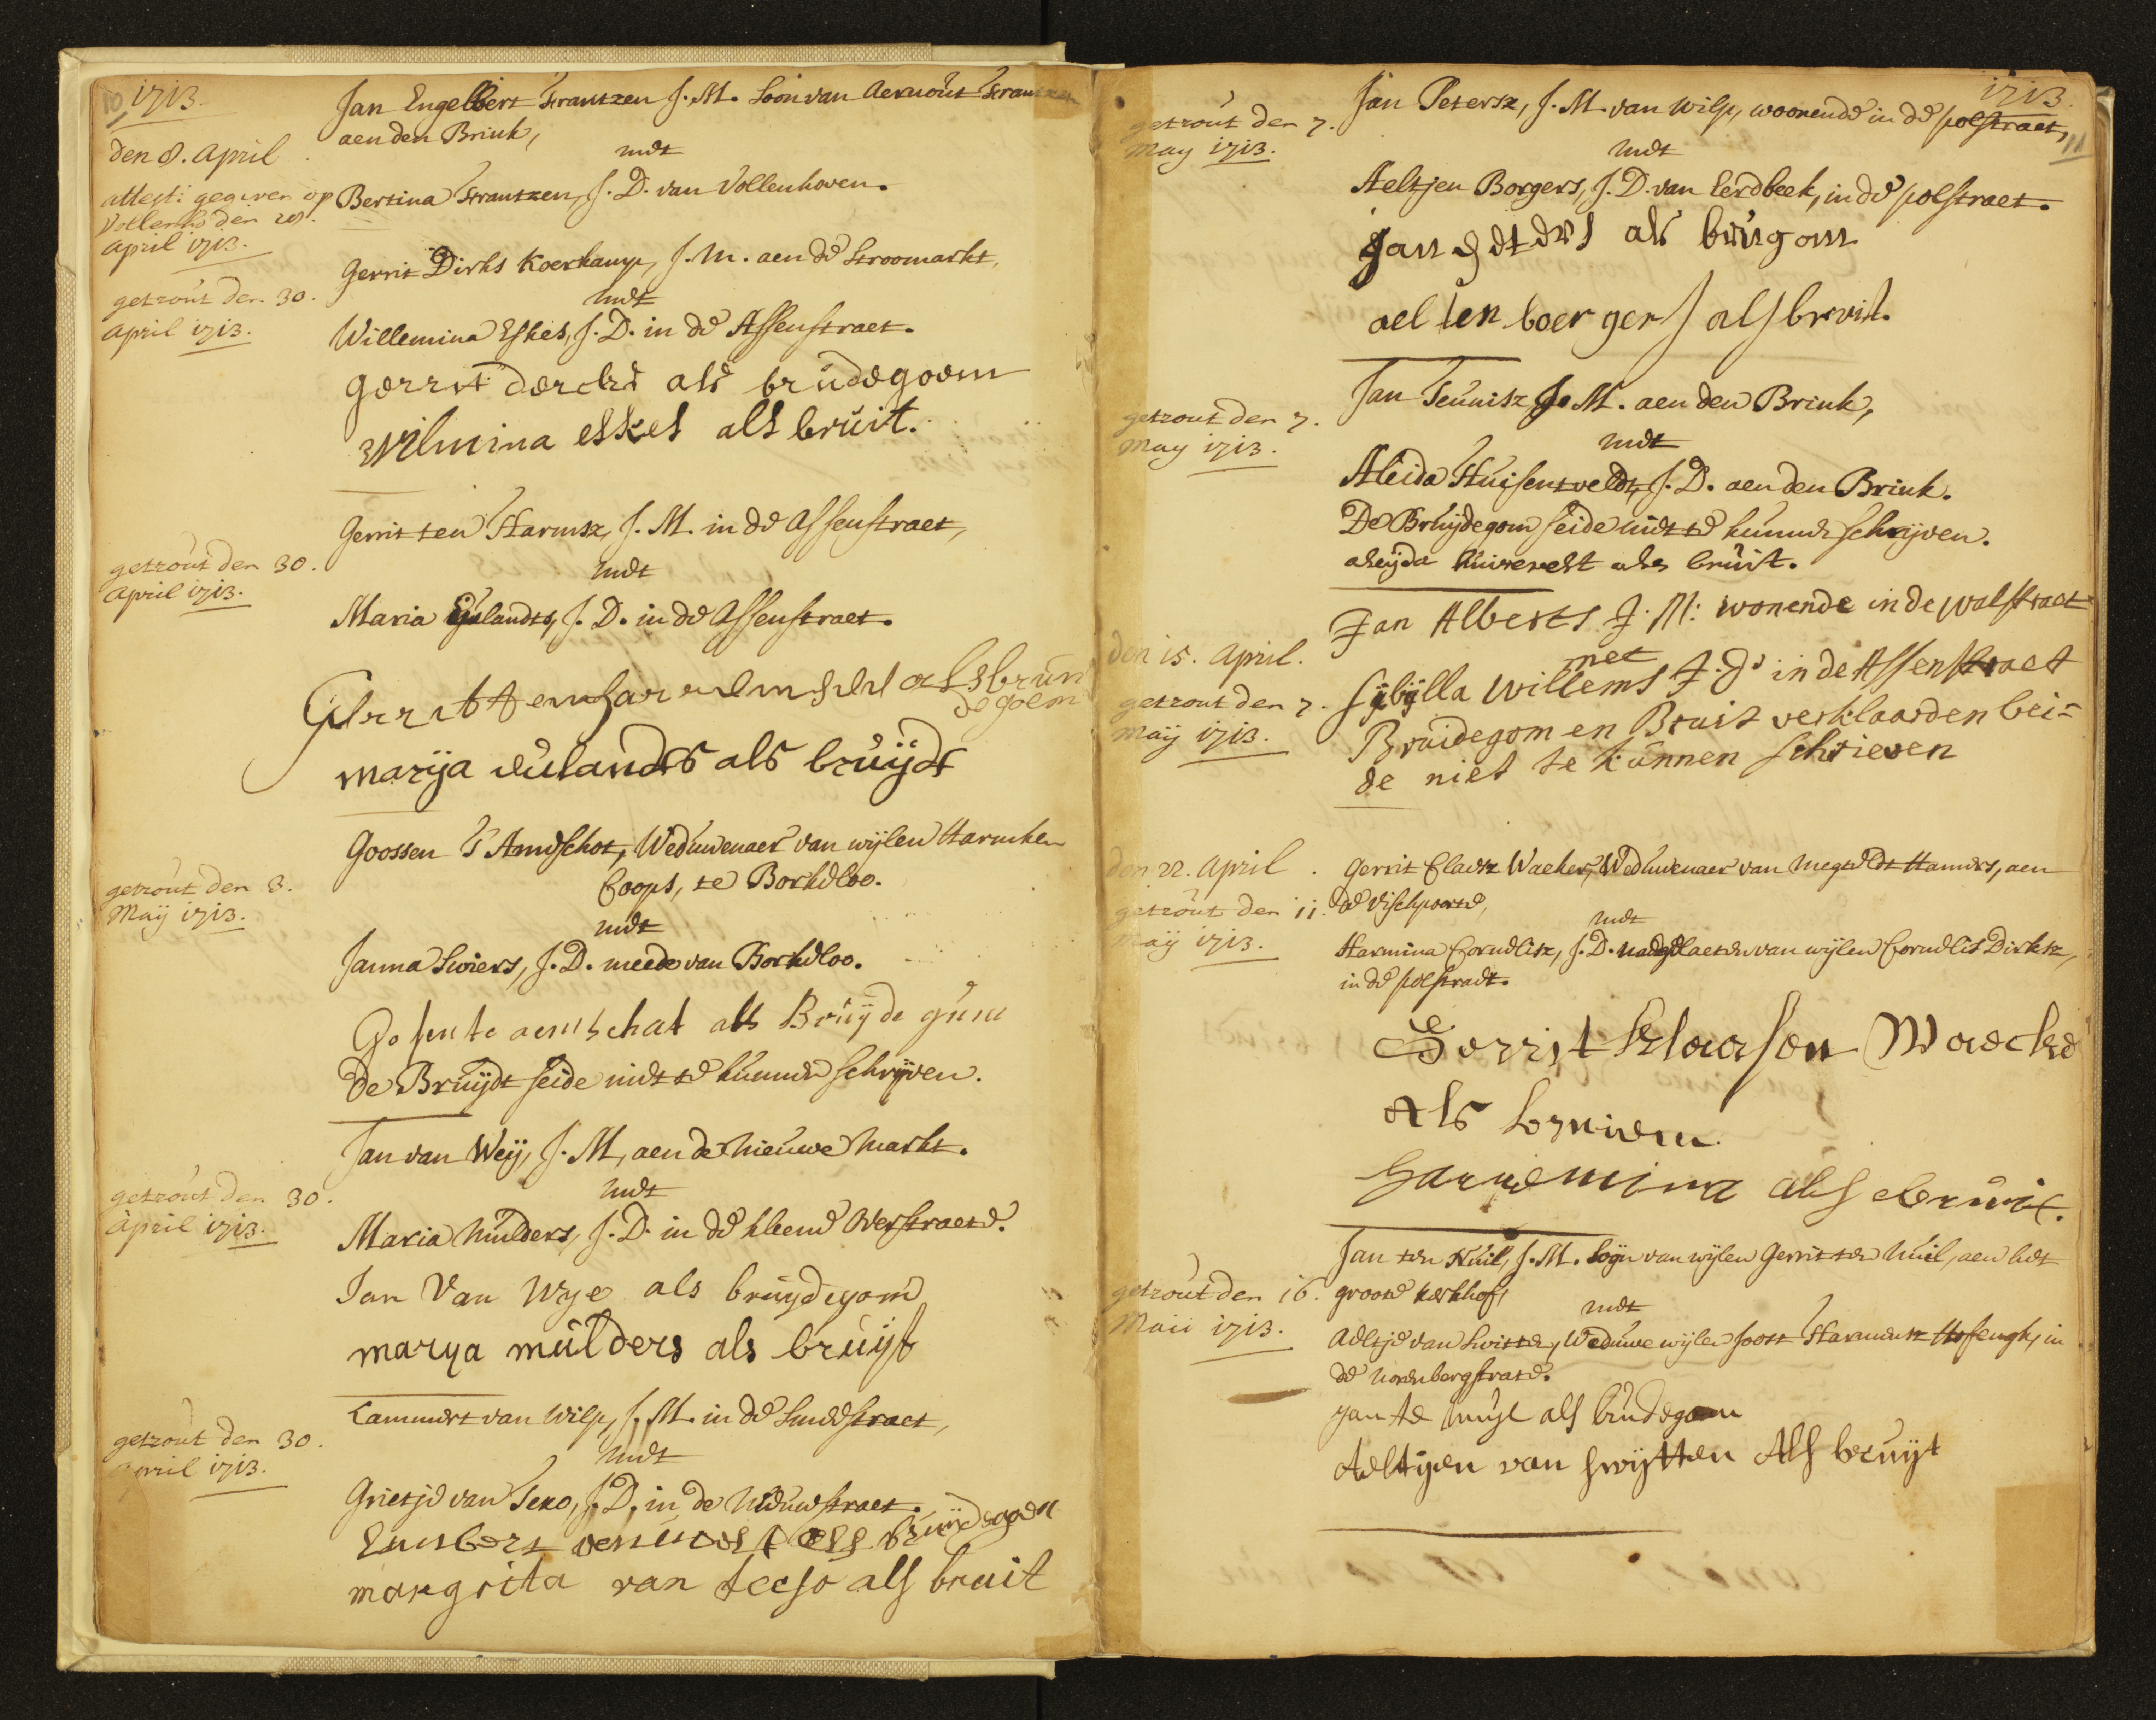 10 1713.
den 8. April
attest: gegeven op
Vollenho den 28.
April 1713.
Jan Engelbert Frantzen J. M. Soon van Aernout Frantzen
aen den Brink,
met
Bertina Frantzen, J. D. van Vollenhoven.
getrout den 30.
April 1713.
Gerrit Dirks Koerkamp, J. M. aen de Stroomarkt,
met
Willemina Eskes, J. D. in de Assenstraet.
gerrit dercks als brudegoem
Wilmina eskes als bruit.
getrout den 30.
April 1713.
Gerrit ten Harmsz, J. M. in de Assenstraet,
met
Maria Eulandts, J. D. in de Assenstraet.
Gerrit ten als brun
degoem
marija eulandts als bruijdt
getrout den 3.
Maij 1713.
Goossen 'T Amdschot, Weduwenaer van wijlen Harmken
Coops, te Borkeloo.
met
Janna Swiers, J. D. meede van Borkeloo.
Gosen te aemschat als Bruijde gum
De Bruijdt seide niet te kunnen schrijven.
getrout den 30.
April 1713.
Jan van Weij, J. M, aen de Nieuwe Markt.
met
Maria Mulders, J. D. in de kleene Overstraete.
Jan Van Wye als bruijdegom
marya mulders als bruijt
getrout den 30.
April 1713.
Lammert van Wilp, J. M. in de Smeestraet,
met
Grietje van Texo, J. D, in de Nieuwstraet.
Lambert als bruijdegom
margrita van teeso als bruit
1713.
11
getrout den 7.
May 1713.
Jan Petersz, J. M. van Wilp, woonende in de polstraet,
met
Aeltjen Borgers, J. D. van Eerdbeek, in de polstraet.
Jan peters als brugom
aelten boergers als brvit.
getrout den 7.
May 1713.
Jan Teunisz J. M. aen den Brink,
met
Aleida Huisentveldt, J. D. aen den Brink.
De Bruijdegom seide niet te kunnen schrijven.
aleijda huisevelt als bruit.
den 15. April.
getrout den 7.
Maij 1713.
Jan Alberts J: M: wonende in de walstraet
met
Sijbijlla Willems J: D: in de Assenstraet
Bruidegom en Bruit verklaarden bei-
de niet te kunnen schrieven
den 22. April.
getrout den 11.
Maij 1713.
Gerrit Claesz Waeker, Weduwenaer van Megteldt Hanners, aen
de Vischpoorte,
met
Harmina Cornelisz, J. D. nadegelaeten van wijlen Cornelis Dirksz,
in de polstraet.
Gerrit klaasen Waecke
als
Harmemina als bruit.
getrout den 16.
Maii 1713.
Jan ten Nuil, J. M. soon van wijlen Gerrit ten Nuil, aen het
groote kerkhof,
met
Aeltje van Switten, Weduwe wijlen Joost Harmensz Assengh, in
de Norenbergstrate.
yan te nuyl als brudegom
Aeltijen van swijtten Als bruijt